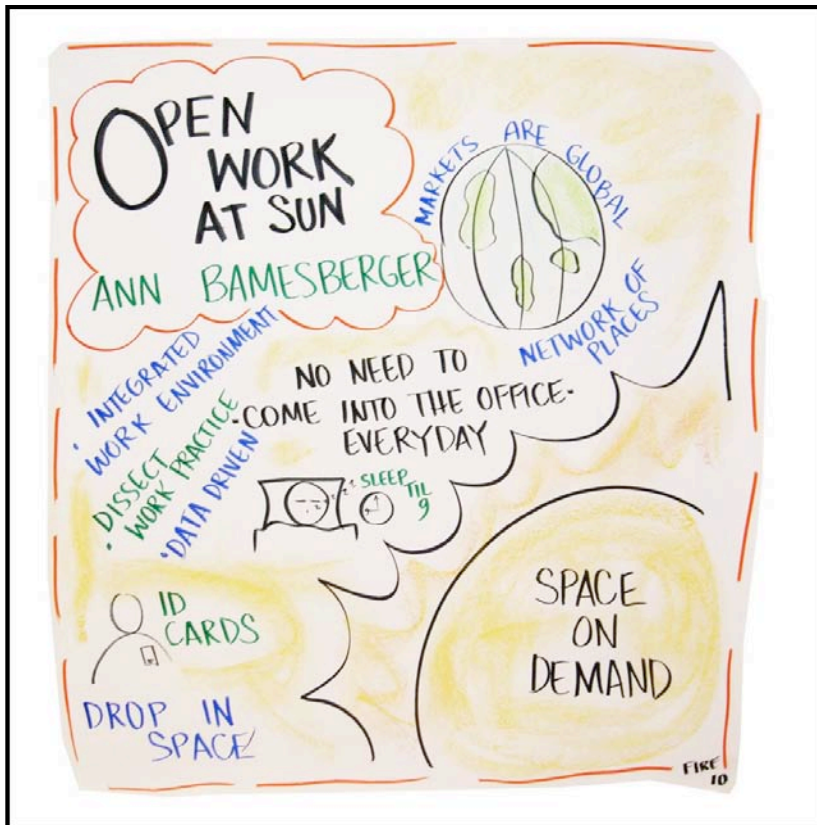 OPEN
WORK
AT SUN
ANN BAMESBERGER
MARKETS ARE GLOBAL
NETWORK OF
PLACES
• INTEGRATED
WORK ENVIRONMENT
• DISSECT
WORK PRACTICE
• DATA DRIVEN
NO NEED TO
-COME INTO THE OFFICE-
EVERYDAY
SLEEP
TIL
9
ID
CARDS
DROP IN
SPACE
SPACE
ON
DEMAND
FIRE
10